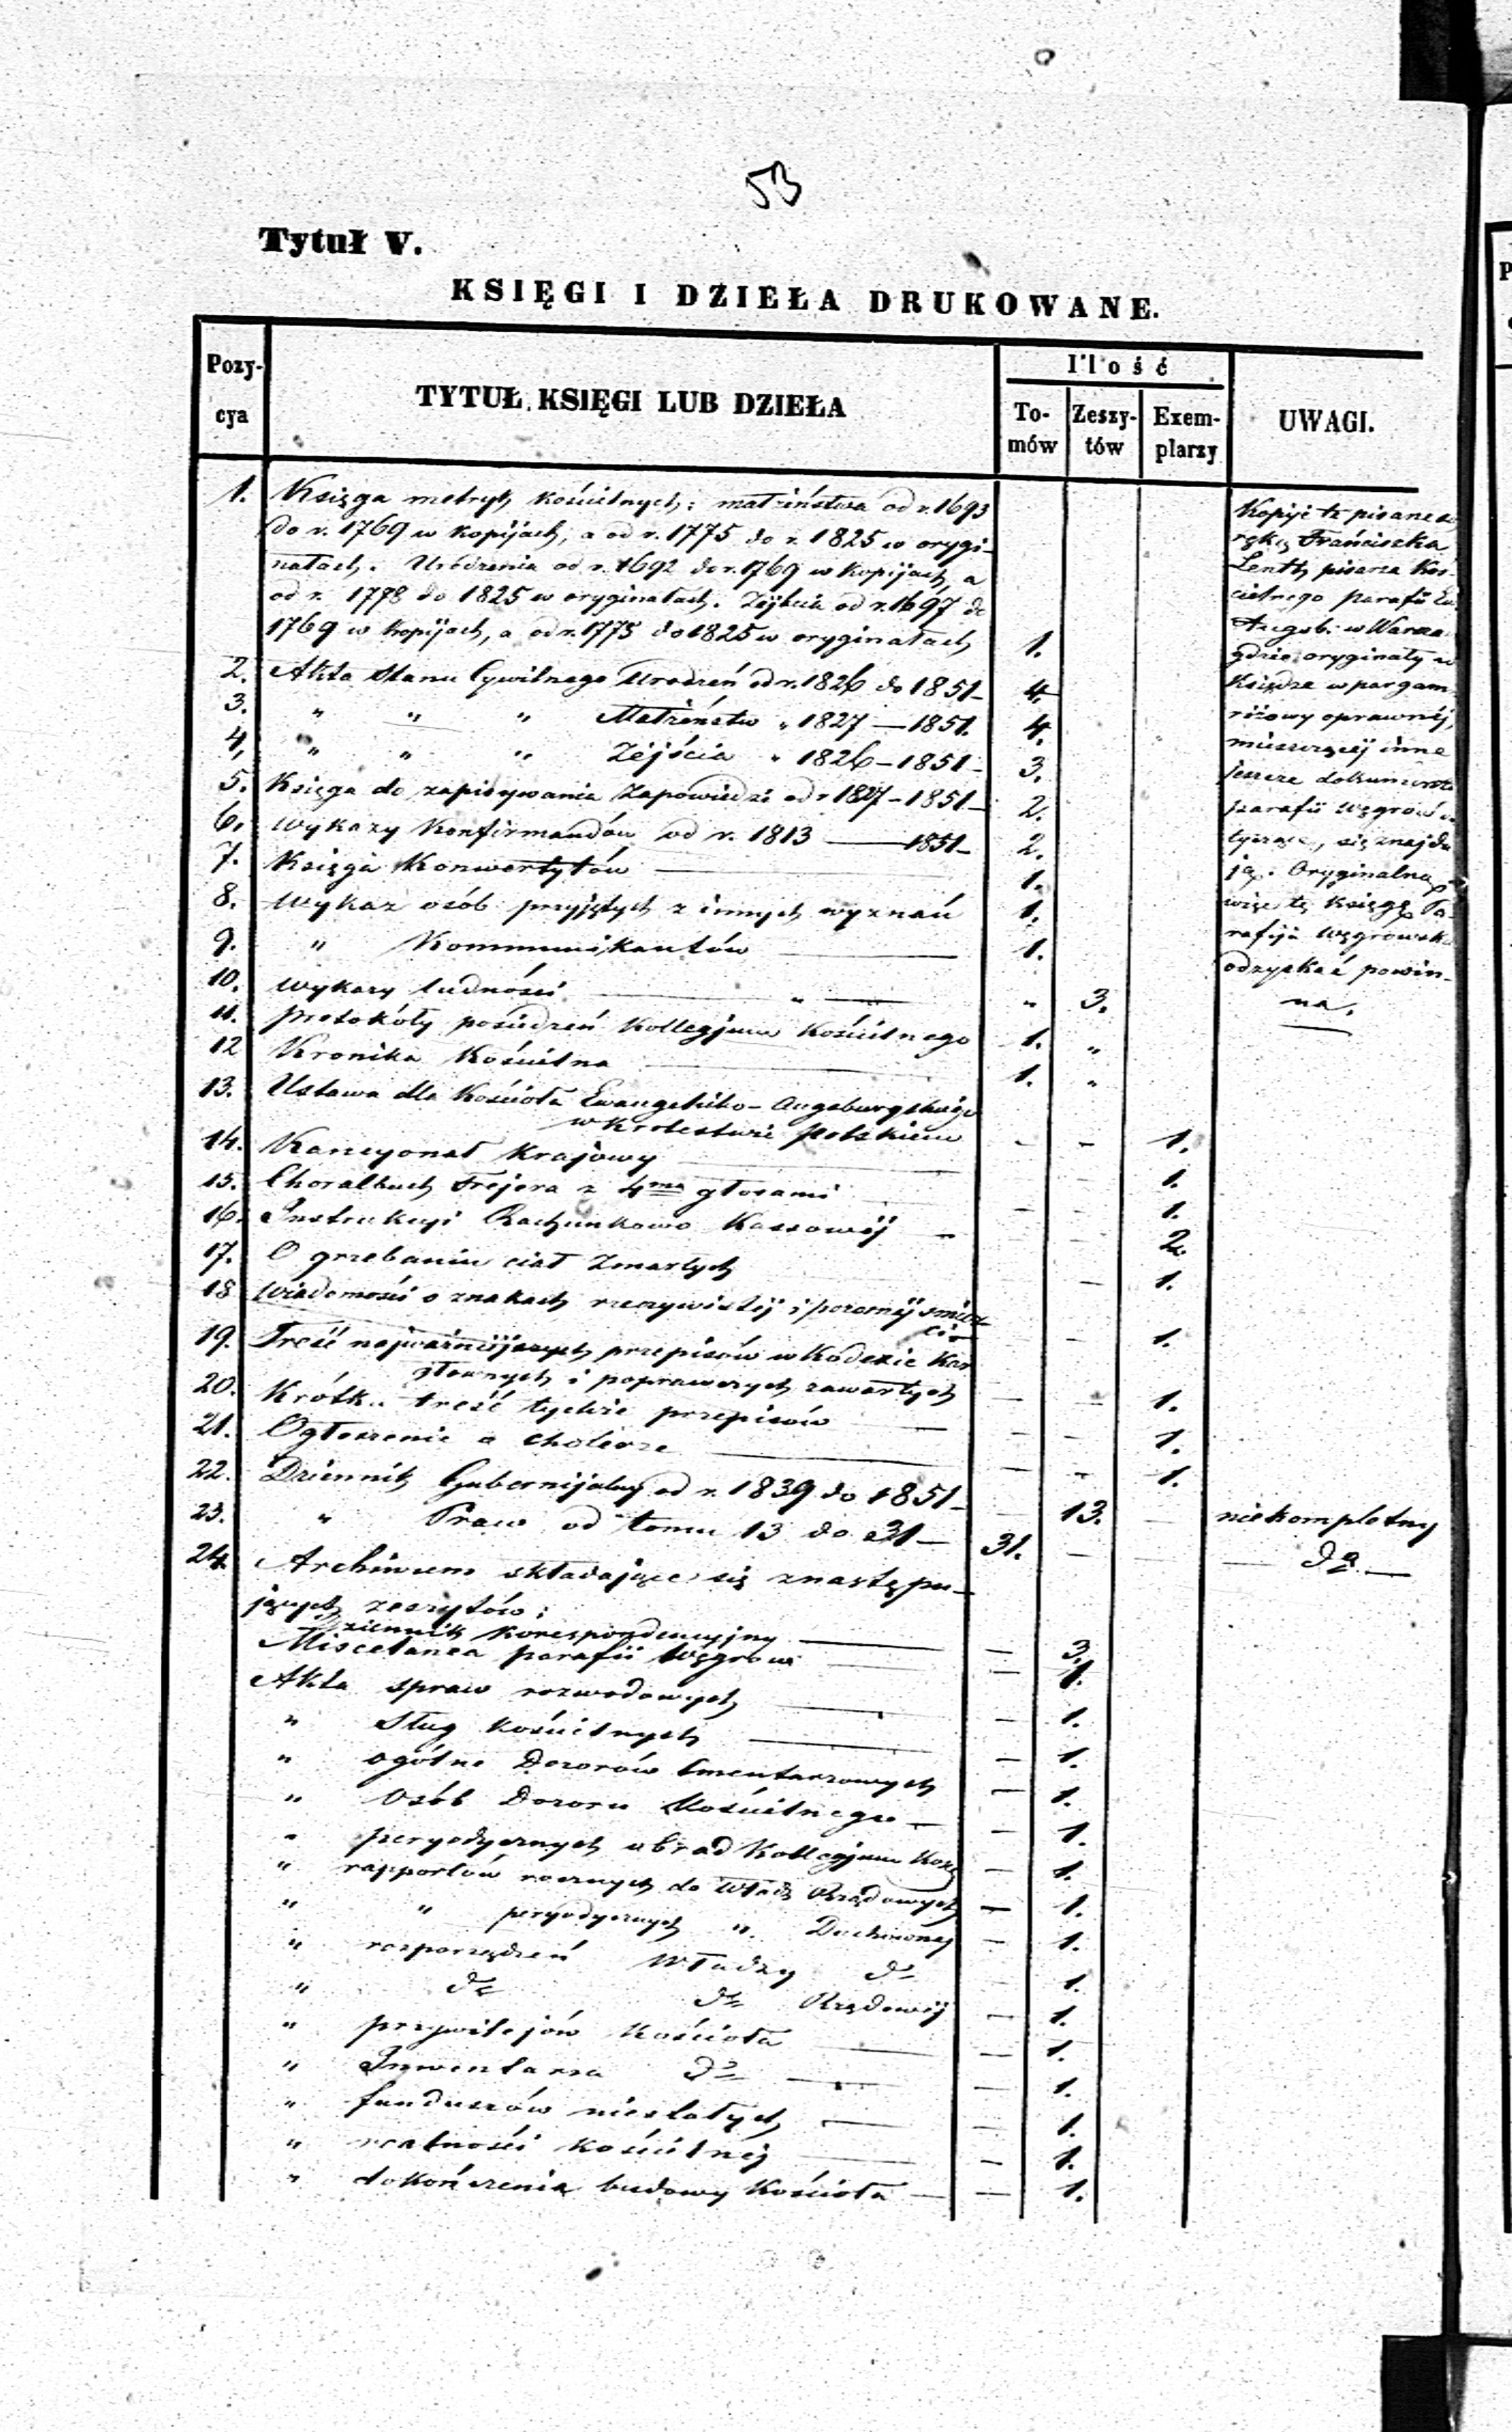 53
Tytuł V.
KSIĘGI I DZIEŁA DRUKOWANE.
Pozy-
cya
TYTUŁ KSIĘGI LUB DZIEŁA
Ilość
To-
mów
Zeszy-
tów
Exem-
plarzy
UWAGI.
1. Księga metryk kościelnych: małżeństwa od r. 1693
do r. 1769 w kopijach, a od r. 1775 do r. 1825 w orygi-
nałach. Urodzenia od r. 1692 do r. 1769 w kopijach, a
od r. 1778 do 1825 w oryginałach. Zejścia od r. 1697 do
1769 w kopijach, a od r. 1775 do 1825 w oryginałach 1.
Kopije te pisane są
ręką Franciszka
Lenth pisarza Koś-
cielnego parafii Ew.
Augsb. w Warsza
gdzie oryginały w
Księdze w pargam.
różowy oprawnéj,
mieszczącéj inne
jeszcze dokumenta
parafii Węgrów
tyczące, się znajdu
ją. Oryginalną
więc tę księgę Pa-
rafija Węgrowska
odzyskać powin-
na.
2. Akta Stanu Cywilnego Urodzeń od r. 1826 do 1851 – 4.
3. " " " Małżeństw " 1827 — 1851. 4.
4. " " " Zejścia " 1826 – 1851 – 3.
5. Księga do zapisywania Zapowiedzi od r 1827 – 1851 – 2.
6. Wykazy Konfirmandów od r. 1813 — 1851 – 2.
7. Księga Konwertytów — 1.
8. Wykaz osób przyjętych z innych wyznań 1.
9. " Kommunikantów — 1.
10. Wykazy ludności — " — " 3.
11. Protokóły posiedzeń Kollegjum Kościelnego 1. "
12 Kronika Kościelna — 1. "
13. Ustawa dla Kościoła Ewangelicko-Augsburgskiego
w Królestwie Polskiem – – 1.
14. Kancyonał Krajowy — 1.
15. Choralbuch Frejera z 4ma głosami – – 1.
16. Instrukcyi Rachunkowo Kassowéj – 2.
17. O grzebaniu ciał Zmarłych – 1.
18 Wiadomości o znakach rzeczywistéj i pozornéj śmier
ci – – 1.
19. Treść najważniejszych przepisów w Kodexie Kar
głównych i poprawczych zawartych – – 1.
20. Krótka treść tychże przepisów — – – 1.
21. Ogłoszenie o cholerze — – – 1.
22. Dziennik Gubernijalny od r. 1839 do 1851 – 13. – niekompletny
23. " Praw od tomu 13 do 31 – 31. – – — do —
24. Archiwum składające się z następu-
jących zeszytów:
Dziennik korespondencyjny — – 3.
Miscelanea parafii Węgrów — – 1.
Akta spraw rozwodowych — – 1.
" Sług kościelnych — – 1.
" ogólne Dozorów Cmentarzowych – 1.
" Osób Dozoru Kościelnego – – 1.
" peryodycznych obrad Kollegjum Kość – 1.
" rapportów rocznych do Władz Rządowych – 1.
" " peryodycznych " Duchownej – 1.
" rozporządzeń Władzy do 1.
" do do Rządowéj – 1.
" przywilejów Kościoła — – 1.
" Inwentarza do — – 1.
" funduszów niestałych — – 1.
" realności kościelnéj — – 1.
" dokończenia budowy Kościoła — – 1.